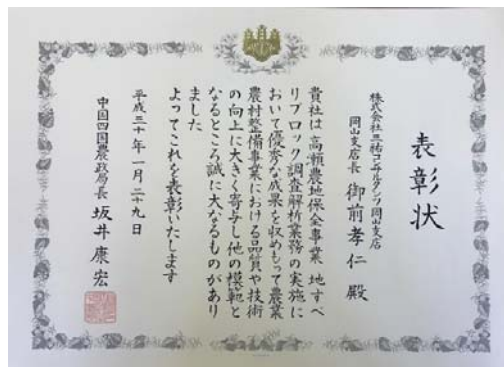 表彰状
株式会社三祐コンサルタンツ岡山支店
岡山支店長 御前孝仁 殿
貴社は高瀬農地保全事業 地すべ
りブロック調査解析業務の実施に
おいて優秀な成果を収めもって農業
農村整備事業における品質や技術
の向上に大きく寄与し他の模範と
なるところ誠に大なるものがあり
ました
よってこれを表彰いたします
平成三十年一月二十九日
中国四国農政局長 坂井康宏